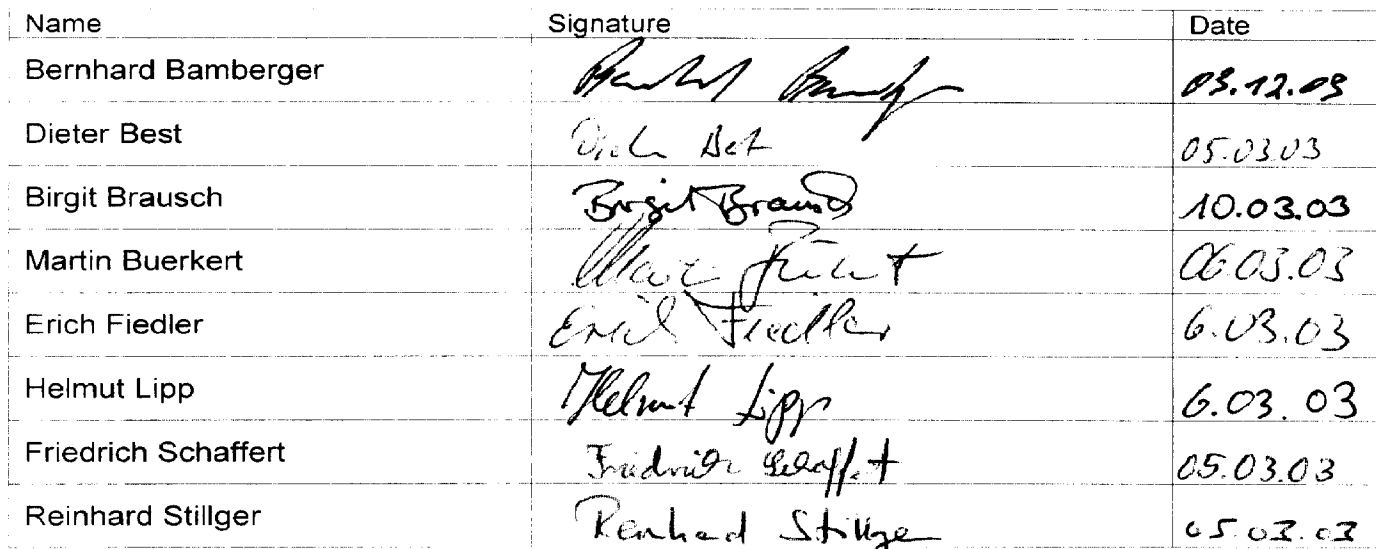 Name Signature Date
Bernhard Bamberger 03.12.03
Dieter Best 05.03.03
Birgit Brausch Birgit Brausch 10.03.03
Martin Buerkert 06.03.03
Erich Fiedler Erich Fiedler 6.03.03
Helmut Lipp Helmut Lipp 6.03.03
Friedrich Schaffert Friedrich Schaffert 05.03.03
Reinhard Stillger Reinhard Stillger 05.03.03